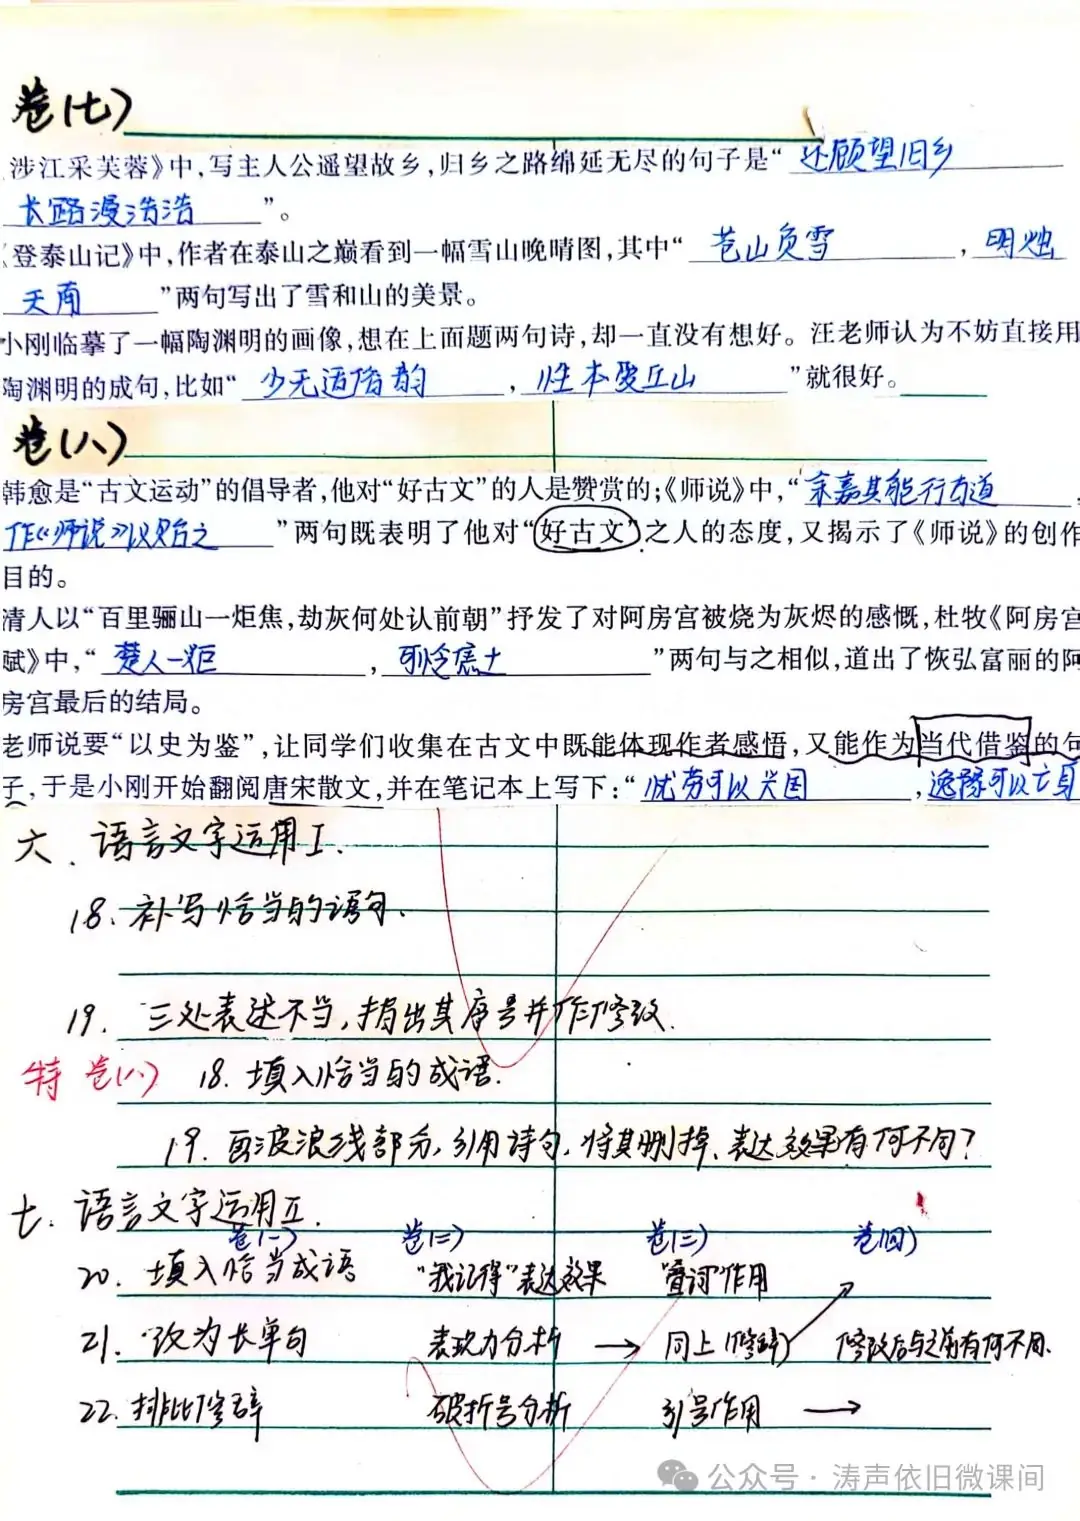 卷(七)
涉江采芙蓉》中,写主人公遥望故乡,归乡之路绵延无尽的句子是“ 还顾望旧乡
长路漫浩浩 ”。
《登泰山记》中,作者在泰山之巅看到一幅雪山晚晴图,其中“ 苍山负雪 , 明烛
天南 ”两句写出了雪和山的美景。
小刚临摹了一幅陶渊明的画像,想在上面题两句诗,却一直没有想好。汪老师认为不妨直接用
陶渊明的成句,比如“ 少无适俗韵 , 性本爱丘山 ”就很好。
卷(八)
韩愈是“古文运动”的倡导者,他对“好古文”的人是赞赏的;《师说》中,“ 余嘉其能行古道 ,
作《师说》以贻之 ”两句既表明了他对“好古文”之人的态度,又揭示了《师说》的创作
目的。
清人以“百里骊山一炬焦,劫灰何处认前朝”抒发了对阿房宫被烧为灰烬的感慨,杜牧《阿房宫
赋》中,“ 楚人一炬 , 可怜焦土 ”两句与之相似,道出了恢弘富丽的阿
房宫最后的结局。
老师说要“以史为鉴”,让同学们收集在古文中既能体现作者感悟,又能作为当代借鉴的句
子,于是小刚开始翻阅唐宋散文,并在笔记本上写下:“ 忧劳可以兴国 , 逸豫可以亡身
六. 语言文字运用I.
18. 补写恰当的语句.
19. 三处表述不当,指出其序号并作修改.
特 卷(八) 18. 填入恰当的成语.
19. 画波浪线部分,引用诗句,将其删掉、表达效果有何不同?
七. 语言文字运用II.
卷(一) 卷(二) 卷(三) 卷(四)
20. 填入恰当成语 “我记得”表达效果 “叠词”作用
21. 改为长单句 表现力分析 → 同上(修辞) 修改后与之前有何不同.
22. 排比修辞 破折号分析 引号作用 →
公众号·涛声依旧微课间